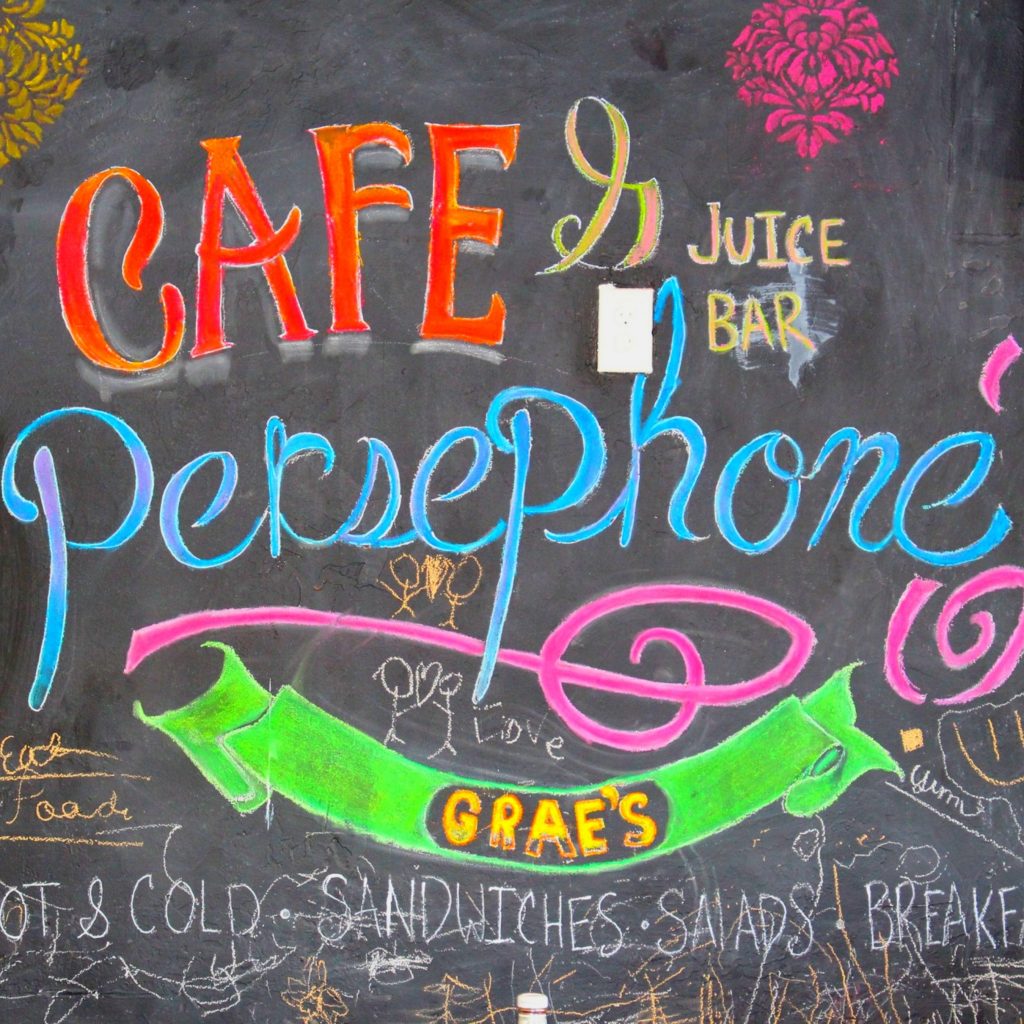 CAFE & JUICE
BAR
persephone
Love
GRAE'S
Food
yum
OT & COLD · SANDWICHES · SALADS · BREAKFA